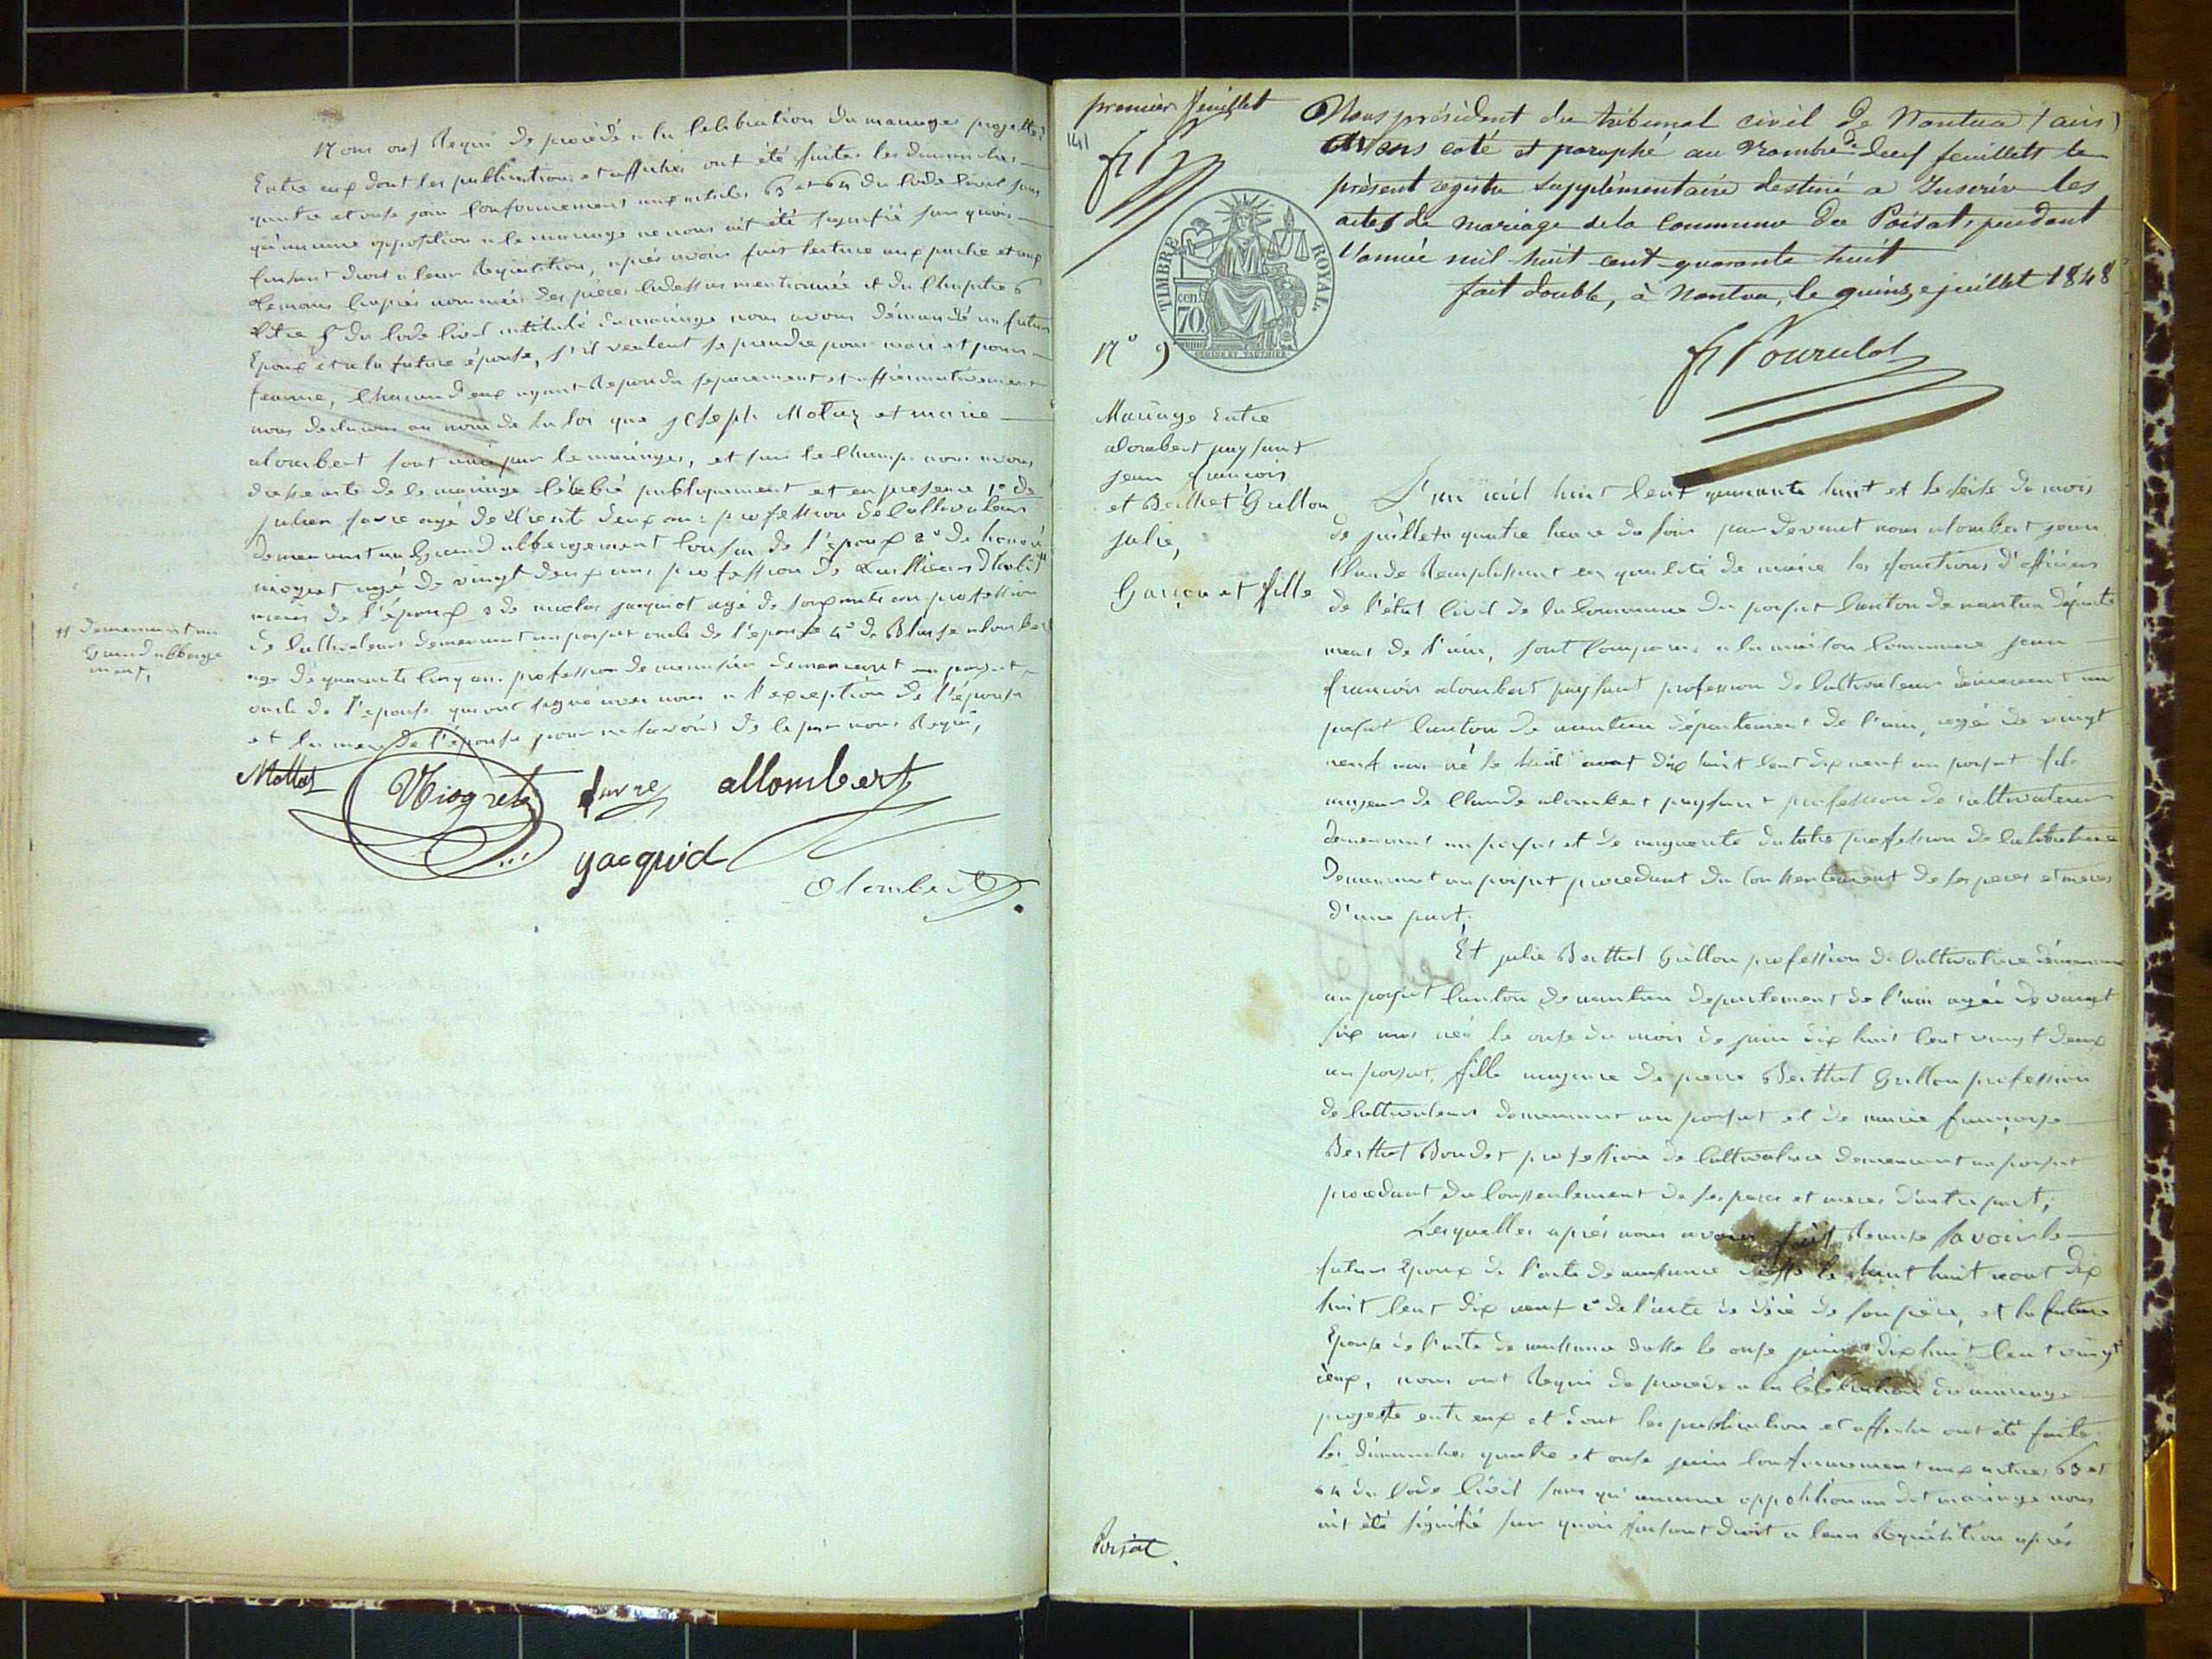 Nous ont Requi de procédé a la celebration du mariage projetté
Entre eux dont les publications et affiches ont été faites les dimanches
quatre et onse juin conformement aux articles 63 et 64 du code civil sans
qu'aucune opposition a le mariage ne nous ait été signifié sur quoi
faisant droit a leur Requisition, après avoir fait lecture aux partie et aux
temoins ciaprès nommés des pièces cidessus mentionnée et du Chapitre 6
titre 5 du code civil intitulé du mariage nous avons démandé au futur
Epoux et a la future épouse, s'il veulent se prendre pour mari et pour
femme, chacun d'eux ayant Repondu séparement et affirmativement
nous declarons au nom de la loi que joseph Mottaz et marie
alombert sont unis par le mariage, et sur le Champ nous avons
dressé acte de le mariage célébré publiquement et en presence 1° de
julien favre agé de trente deux ans profession de cultivateur
demeurant au Grand abbergement cousin de l'époux 2° de honoré
niogret agé de vingt deux ans profession de tailleur d'habit #
de l'époux 3 de nicolas jacquiot agé de soixante ans profession
de cultivateur demeurant au poisat oncle de l'épouse 4° de Blaise alombert
age de quarante cinq ans profession de menuisier demeurant au poisat
oncle de l'épouse qui ont signé avec nous a l'exception de l'épouse
et la mere de l'épouse pour ne savoir de le par nous Requi,
# demeurant au
Grand abberge
ment,
Mottaz Niogret favre allombert
jacquiot
Alombert
premier feuillet
141
Nous président du tribunal civil de Nantua (ain)
Avons coté et paraphé au nombre de deuf feuillets le
présent registre supplémentaire destiné a Inscrire les
actes de mariage de la Commune du Poisat, pendant
l'année mil huit cent quarante huit
fait double, à Nantua, le quinze juillet 1848
TIMBRE ROYAL
70 cen.
N° 9
Mariage Entre
alombert paysant
jean françois
et Berthet Grillon
julie,
Garçon et fille
L'an mil huit Cent quarante huit et le seise du mois
de juillet a quatre heure du soir par devant nous alombert jean
Claude Remplissant en qualité de maire les fonctions d'officier
de l'état Civil de la Commune du poisat canton de nantua départe
ment de l'ain, sont Comparus a la maison Commune jean
françois alombert paysant profession de Cultivateur demeurant au
poisat Canton de nantua département de l'ain, agé de vingt
neuf ans né le huit aout dix huit Cent dix neuf au poisat fils
majeur de Claude alombert paysant profession de cultivateur
demeurant au poisat et de marguerite profession de cultivatrice
Demeurant au poisat procedant du Consentement de ses peres et meres
d'une part,
Et julie Berthet Grillon profession de Cultivatrice demeurant
au poisat Canton de nantua departement de l'ain agée de vingt
six ans née le onse du mois de juin dix huit Cent vingt deux
au poisat, fille majeure de pierre Berthet Grillon profession
de Cultivateur demeurant au poisat et de marie françoise
Berthet Bondet profession de Cultivatrice demeurant au poisat
procedant du Consentement de ses peres et meres d'autre part,
Lesquelles après nous avoir fait Remise savoir le
futur Epoux de l'acte de naissance le huit aout dix
huit Cent dix neuf 2° de l'acte de décè de son père, et la future
Epouse de l'acte de naissance datte le onse juin dix huit Cent vingt
deux, nous ont Requi de procede a la Célébration du mariage
projetté entr'eux et dont les publication et affiche ont été faite
les dimanches quatre et onse juin Conformement aux articles 63 et
64 du Code Civil sans qu'aucune opposition au dit mariage nous
ait été signifié sur quoi faisant droit a leur Requisition après
Poisat.